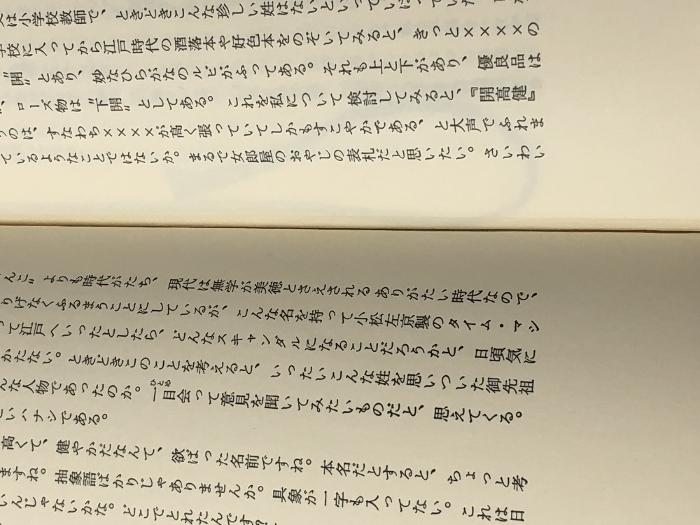 は小学校教師で、ときどきこんな珍しい姓はないといって
校に入ってから江戸時代の洒落本や好色本をのぞいてみると、きっと××××の
〝開〟とあり、妙なひらがなのルビがふってある。それも上と下があり、優良品は
、ロース物は〝下開〟としてある。これを私について検討してみると、『開高健』
のは、すなわち××××が高く張っていてしかもすこやかである、と大声でふれま
ているようなことではないか。まるで女郎屋のおやじの表札だと思いたい。さいわい
んこ〟よりも時代がたち、現代は無学が美徳とさえされるありがたい時代なので、
りげなくふるまうことにしているが、こんな名を持って小松左京製のタイム・マシ
って江戸へいったとしたら、どんなスキャンダルになることだろうかと、日頃気に
かたない。ときどきこのことを考えると、いったいこんな姓を思いついた御先祖
んな人物であったのか。一日会って意見を聞いてみたいものだと、思えてくる。
いハナシである。
高くて、健やかだなんて、欲ばった名前ですね。本名だとすると、ちょっと考
ますね。抽象語ばかりじゃありませんか。具象が一字も入ってない。これは日
いんじゃないかな。どこでとれたんです?